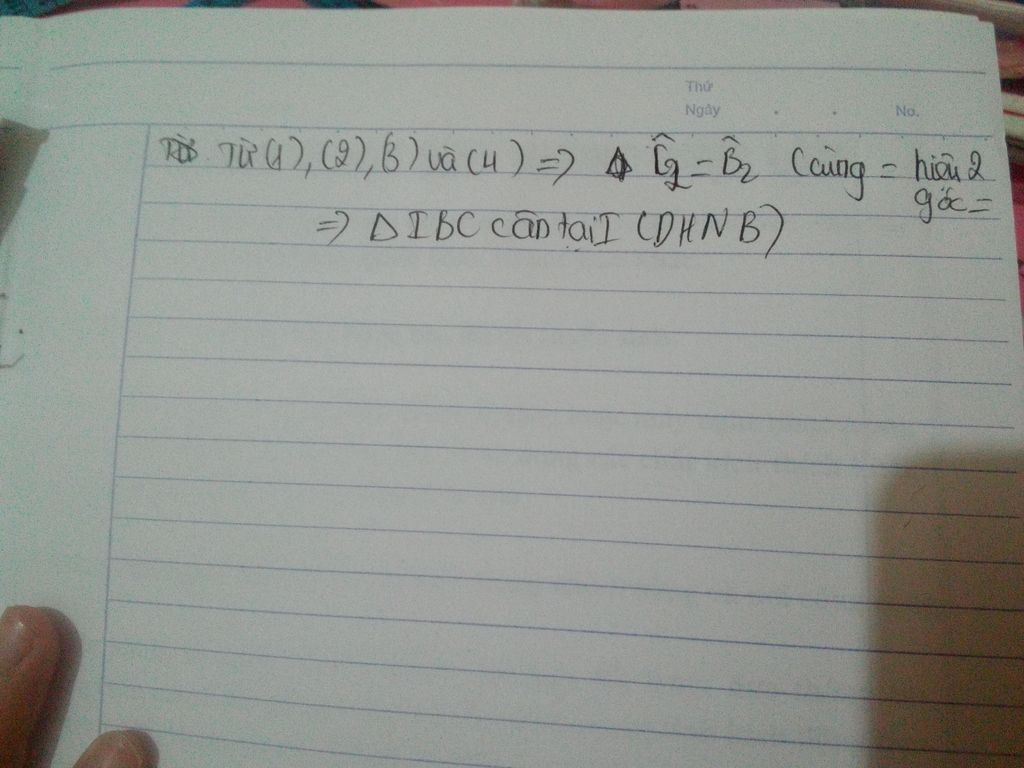 Thứ
Ngày . . No.
Từ (1), (2), (3) và (4) => Ĉ2 = B̂2 (cùng = hiệu 2
góc =
=> Δ IBC cân tại I (DHNB)